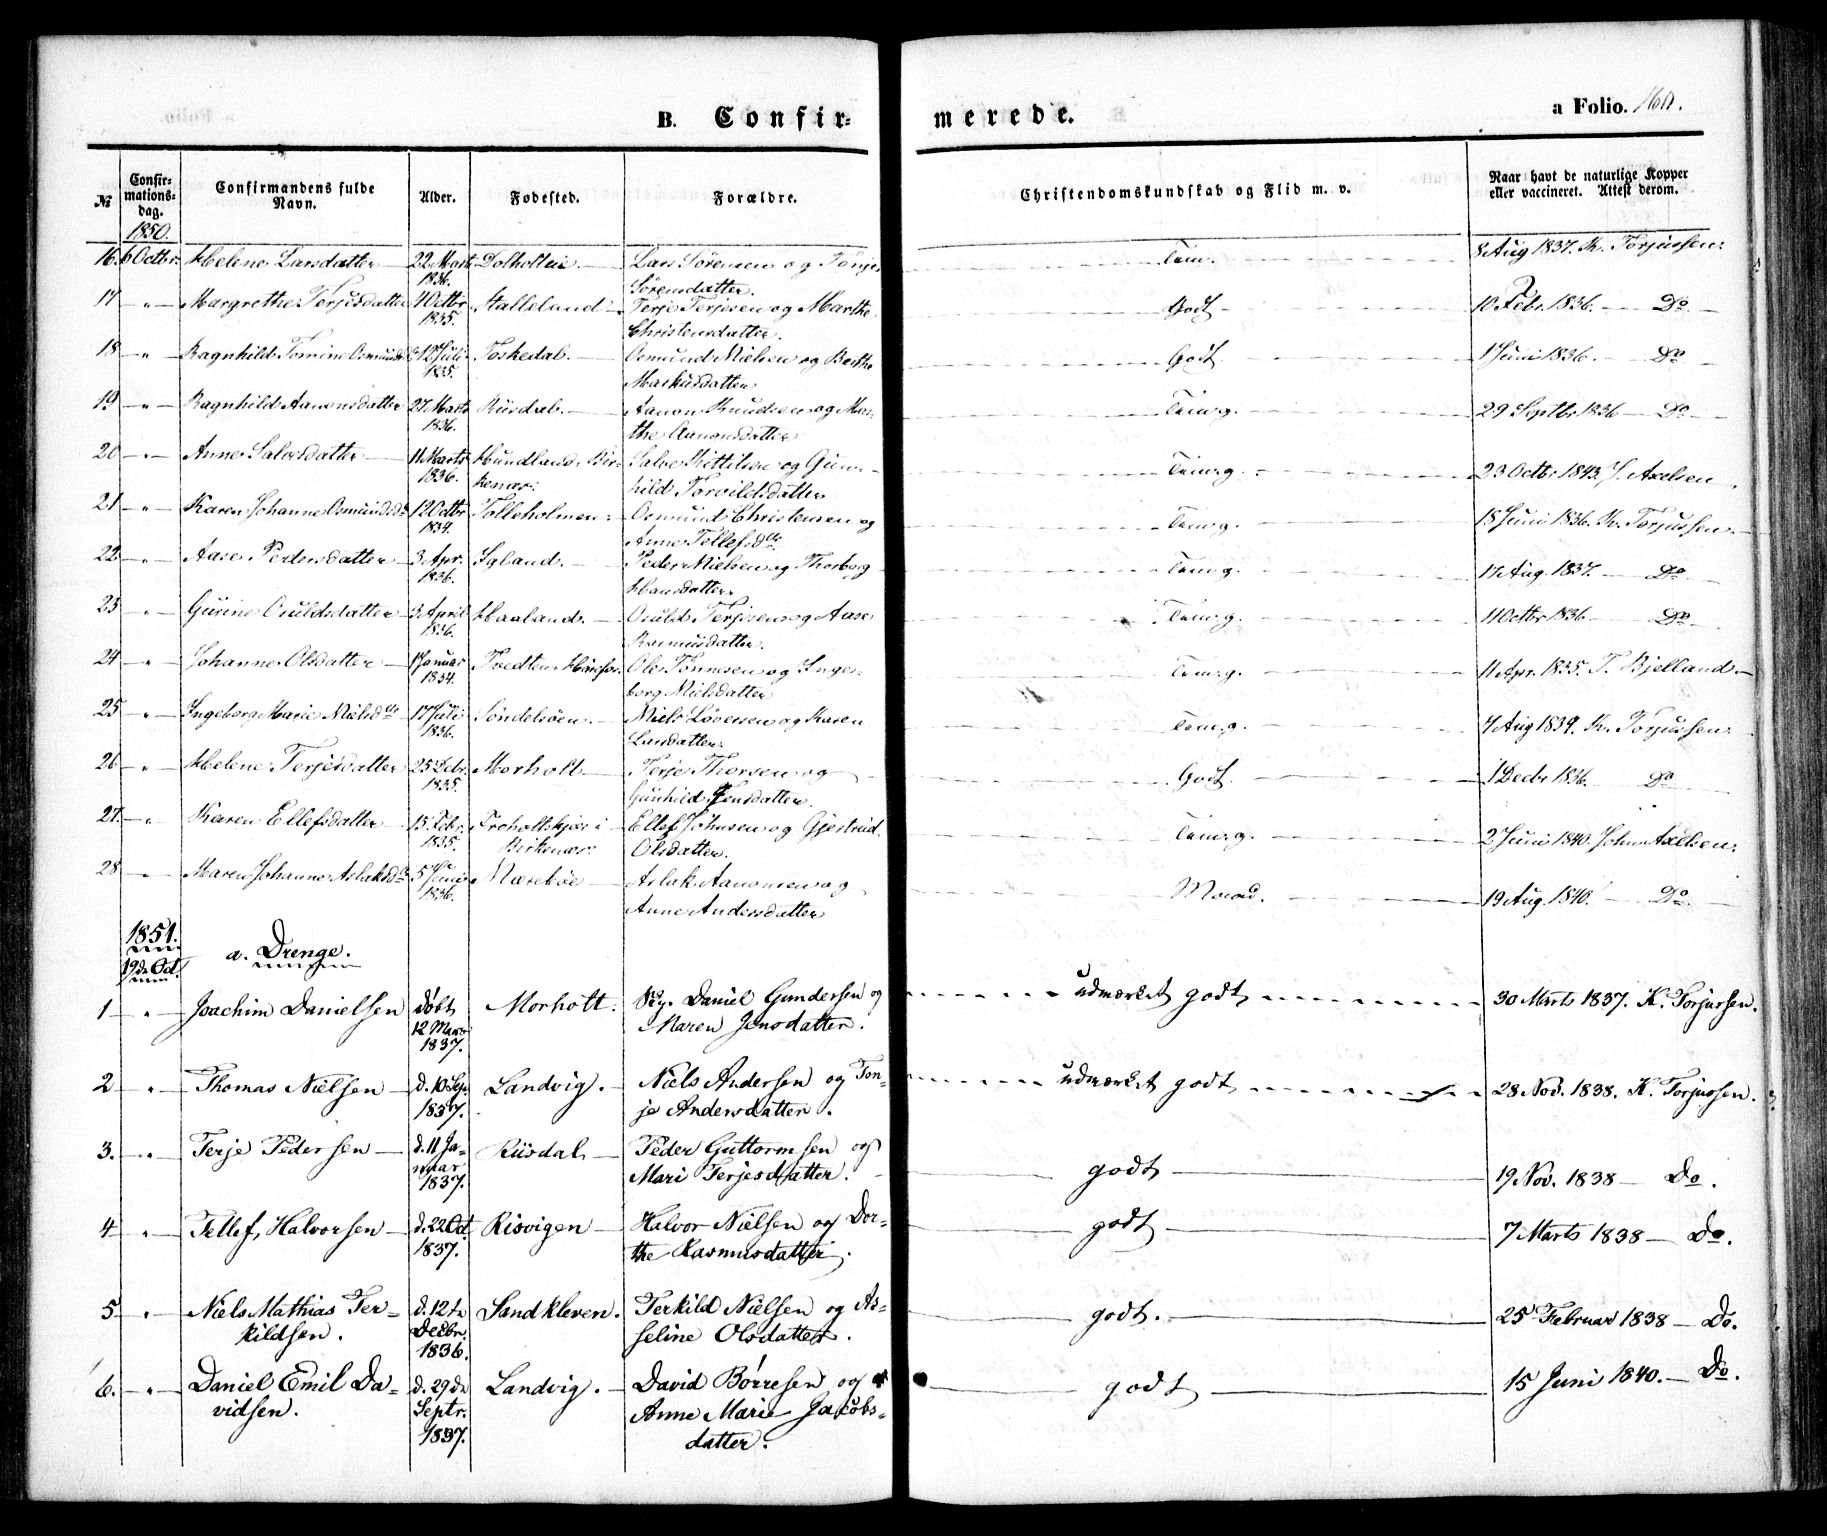 B. Confir- merede. a Folio.
№ Confir-mations-dag. Confirmandens fulde Navn. Alder. Fødested. Forældre. Christendomskundskab og Flid m. v. Naar havt de naturlige Kopper eller vaccineret. Attest derom.
1850.
16. 6 Octbr. Helene Larsdatter 22 Marts Dolholtlie Lars Sørensen og Tonje Tem. 8 Aug 1837. K. Torjussen.
1836. Sørensdatter.
17 " Margrethe Terjesdatter Octbr Stalleland Terje Terjesen og Marthe Godt 10 Febr. 1836. Do
1835. Christensdatter.
18 " Ragnhild Tomine Osmunds 12 Juli Toskedal. Osmund Nielsen og Berthe Godt 1 Juni 1836. Do
1835. Markusdatter
19 " Ragnhild Aanonsdatter 27 Marts Riisdal. Aanon Knudsen og Mar- Tem. g. 29 Septbr 1836 Do
1836. the Aanonsdatter
20 " Anne Salvesdatter 11 Marts Hundland, Bir- Salve Kittilsen og Gun- Tem. g. 23 Octbr 1843. J. Axelsen
1836. kenær. hild Torvildsdatter
21 " Karen Johanne Osmundsd. 12 Octbr Tolleholmen. Osmund Christensen og Tem. g. 18 Juni 1836. K. Torjussen
1834. Anne Tellefsdtr.
22 " Aase Pedersdatter 3 Apr. Igland. Peder Nielsen og Thorborg Tem g. 17 Aug. 1837. Do
1836. Hansdatter
23 " Gurine Osuldsdatter 3 April Haaland. Osuld Terjesen og Aase Tem. g. 11 Octbr 1836 Do
1836. Rasmusdatter.
24 " Johanne Olsdatter 1 Januar Tvedten Ole Tønnesen og Inge- Tem. g. 11 Apr. 1835. T. Bjelland.
1834. borg Nielsdatter
25 " Ingeborg Marie Nielsdtr 17 Juli Søndelsøen. Niels Løversen og Karen Tem. g. 7 Aug 1839. K. Torjussen
1836. Larsdatter.
26 " Helene Terjesdatter 25 Febr. Morholt Terje Thorsen og Godt 1 Decbr 1836. Do
1835. Gunhild Jensdatter.
27. " Karen Ellefsdatter 15 Febr. Troholtskjær i Ellef Johnsen og Gjertrud Tem. g. 2 Juni 1840. John Axelsen.
1835. Birkenær. Olsdatter.
28 " Maren Johanne Aslaksd. 5 Juni Mærebøe Aslak Aanonsen og Maad. 19 Aug. 1840. Do
1836. Anne Andersdatter
1851.
19de Oct. a. Drenge.
1 " Joachim Danielsen døbt Morholt. Daniel Gundersen og udmærket godt 30 Marts 1837. K. Torjussen.
12 Mar Maren Jensdatter.
1837.
2 " Thomas Nielsen d. 10 Sep. Landvig. Niels Andersen og Ton- udmærket godt 28 Nov. 1838. K. Torjussen.
1837. je Andersdatter.
3. " Terje Pedersen d. 11 Ja- Riisdal Peder Guttormsen og godt 19 Nov. 1838 Do.
nuar Mari Terjesdatter.
1837.
4 " Tellef Halvorsen d. 22 Oct. Risvigen Halvor Nielsen og Dor- godt 7 Marts 1838 Do.
1837. the Rasmusdatter.
5 " Niels Mathias Ter- d. 12te Sandkleven. Terkild Nielsen og As- godt. 25 Februar 1838 Do.
kildsen. Decbr. seline Olsdatter.
1836.
6. " Daniel Emil Da- d. 29de Landvig. David Børresen og godt 15 Juni 1840. Do.
vidsen. Septr. Anne Marie Jacobs-
1837. datter.